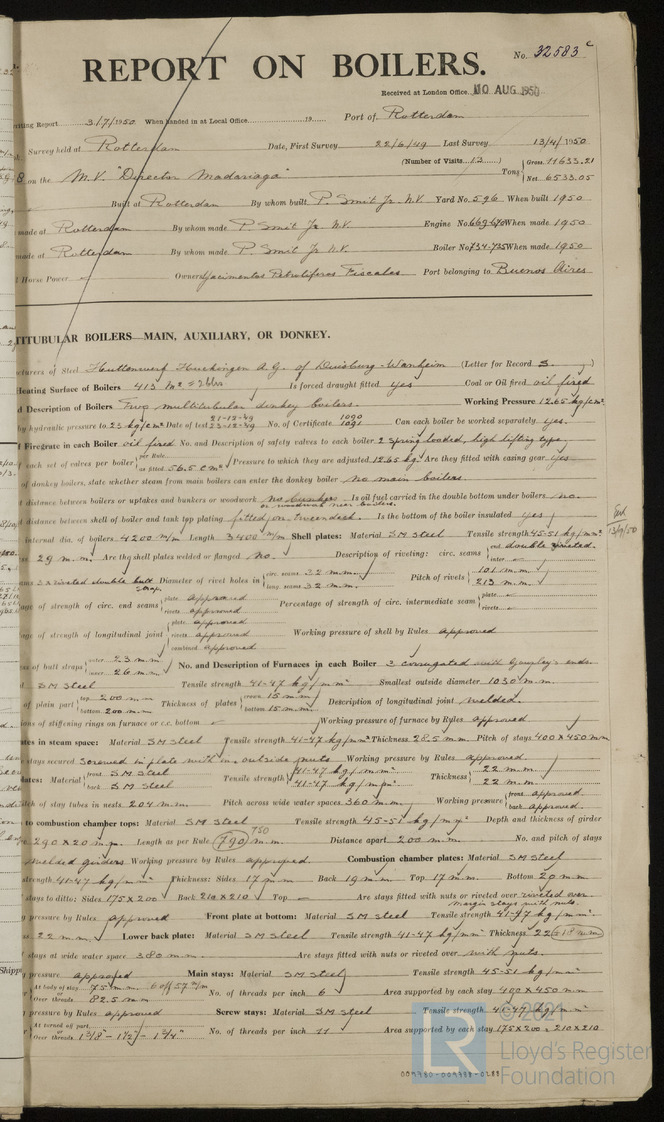 No. 32583 c
REPORT ON BOILERS.
Received at London Office 10 AUG 1950
Report 3/7/1950 When handed in at Local Office 19 Port of Rotterdam
Survey held at Rotterdam Date, First Survey 22/6/49 Last Survey 13/4/1950
(Number of Visits 13)
8 on the M.V. "Director Madariaga" Tons Gross 11633.21 Net 6533.05
Built at Rotterdam By whom built P. Smit Jr. N.V. Yard No. 596 When built 1950
made at Rotterdam By whom made P. Smit Jr. N.V. Engine No. 669-670 When made 1950
made at Rotterdam By whom made P. Smit Jr. N.V. Boiler No. 734-735 When made 1950
Horse Power Owners Yacimientos Petroliferos Fiscales Port belonging to Buenos Aires
TITUBULAR BOILERS—MAIN, AUXILIARY, OR DONKEY.
of Steel A.G. of Duisburg-Wanheim (Letter for Record S.)
Heating Surface of Boilers 413 m² Is forced draught fitted yes Coal or Oil fired oil fired
d Description of Boilers Two multitubular donkey boilers. Working Pressure 12.65 kg/cm²
by hydraulic pressure to 23 kg/cm² Date of test 21-12-49 23-12-49 No. of Certificate 1090 1091 Can each boiler be worked separately yes.
Firegrate in each Boiler oil fired No. and Description of safety valves to each boiler 2 Spring loaded, high lifting type
of each set of valves per boiler per Rule as fitted 56.5 cm² Pressure to which they are adjusted 12.65 kg. Are they fitted with easing gear yes
of donkey boilers, state whether steam from main boilers can enter the donkey boiler no main boilers.
distance between boilers or uptakes and bunkers or woodwork no bunkers or woodwork near boilers. Is oil fuel carried in the double bottom under boilers no.
distance between shell of boiler and tank top plating fitted on tweendeck. Is the bottom of the boiler insulated yes
internal dia. of boilers 4200 m/m Length 3400 m/m Shell plates: Material SM Steel Tensile strength 45-51 kg/mm²
29 m.m. Are the shell plates welded or flanged no. Description of riveting: circ. seams end double riveted. inter.
3x riveted double butt strap. Diameter of rivet holes in circ. seams 32 m.m. long. seams 32 m.m. Pitch of rivets 101 m.m. 213 m.m.
age of strength of circ. end seams plate approved rivets approved Percentage of strength of circ. intermediate seam plate rivets
age of strength of longitudinal joint plate approved rivets approved combined approved Working pressure of shell by Rules approved
of butt straps outer 23 m.m. inner 26 m.m. No. and Description of Furnaces in each Boiler 3 corrugated with Gourley's ends.
SM Steel Tensile strength 41-47 kg/mm² Smallest outside diameter 1030 m.m.
of plain part top 200 m.m. bottom 200 m.m. Thickness of plates crown 15 m.m. bottom 15 m.m. Description of longitudinal joint welded.
ions of stiffening rings on furnace or c.c. bottom Working pressure of furnace by Rules approved
tes in steam space: Material SM Steel Tensile strength 41-47 kg/mm² Thickness 28.5 mm Pitch of stays 400 x 450 mm
stays secured Screwed in plate with outside nuts Working pressure by Rules approved
lates: Material front SM Steel back SM Steel Tensile strength 41-47 kg/mm² 41-47 kg/mm² Thickness 22 m.m. 22 m.m.
itch of stay tubes in nests 204 m.m. Pitch across wide water spaces 360 m.m. Working pressure front approved back approved.
to combustion chamber tops: Material SM Steel Tensile strength 45-51 kg/mm² Depth and thickness of girder
290 x 20 m.m. Length as per Rule 790 750 m.m. Distance apart 200 m.m. No. and pitch of stays
welded girders Working pressure by Rules approved. Combustion chamber plates: Material SM Steel
strength 41-47 kg/mm² Thickness: Sides 17 m.m. Back 19 m.m. Top 17 m.m. Bottom 20 m.m.
stays to ditto: Sides 175 x 200 Back 210 x 210 Top Are stays fitted with nuts or riveted over riveted over. Margin stays with nuts.
pressure by Rules approved Front plate at bottom: Material SM Steel Tensile strength 41-47 kg/mm²
22 m.m. Lower back plate: Material SM Steel Tensile strength 41-47 kg/mm² Thickness 22
stays at wide water space 380 m.m. Are stays fitted with nuts or riveted over with nuts.
pressure approved Main stays: Material SM Steel Tensile strength 45-51 kg/mm²
At body of stay 75 m.m. 6 off 57 m/m Over threads 82.5 m.m. No. of threads per inch 6 Area supported by each stay 400 x 450 mm
pressure by Rules approved Screw stays: Material SM Steel Tensile strength 41-47 kg/mm²
At turned off part Over threads 1 3/8" - 1 1/2" - 1 3/4" No. of threads per inch 11 Area supported by each stay 175 x 200 - 210 x 210
13/9/50
© 2021
LR
Lloyd's Register
Foundation